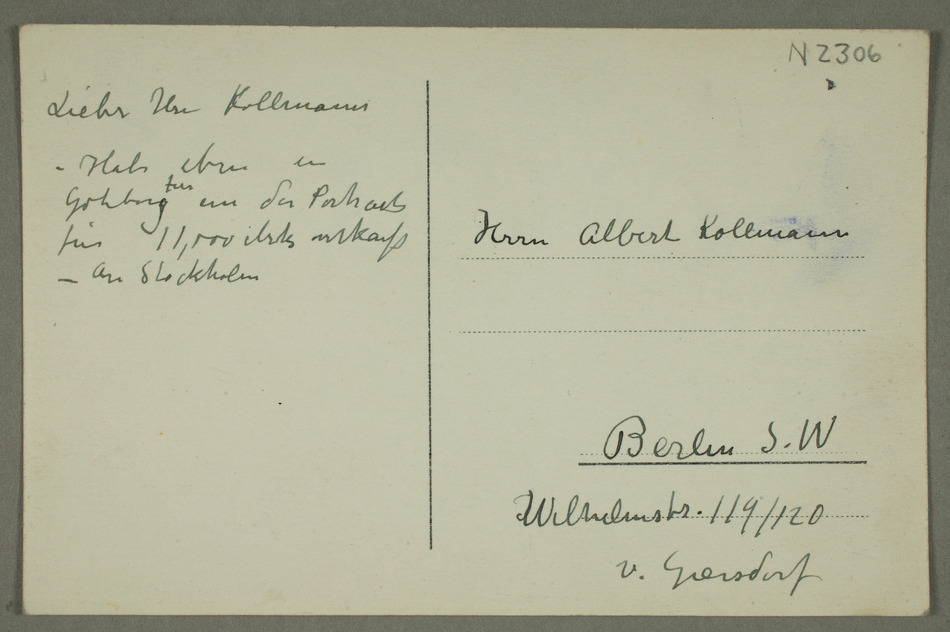 N 2306
Lieber Herr Kollmann
- Habe eben in
Gotheborg für
für 11,000 verkauft
- An Stockholm
Herrn Albert Kollmann
Berlin S.W
Wilhelmstr. 119/120
v. Giersdorf